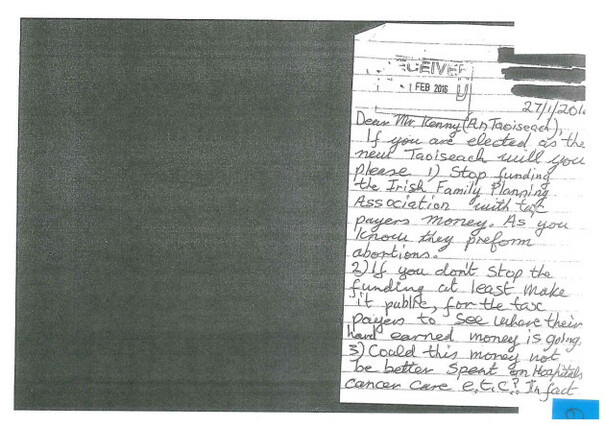 RECEIVED
1 FEB 2016
27/1/201
Dear Mr. Kenny (An Taoiseach),
If you are elected as the
new Taoiseach will you
please 1) Stop funding
the Irish Family Planning
Association with tax
payers money. As you
know they preform
abortions.
2) If you don't stop the
funding at least make
it public, for the tax
payers to see where their
hard earned money is going.
3) Could this money not
be better spent on Hospitals
cancer care e.t.c? In fact